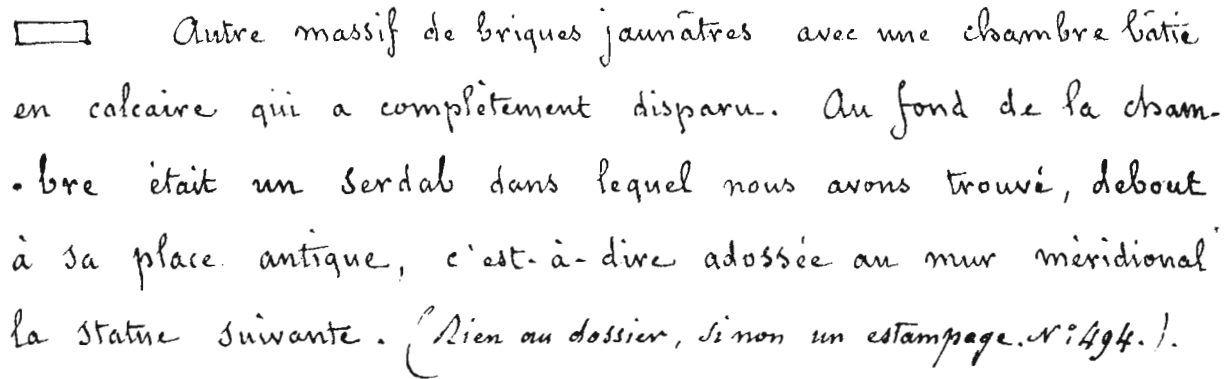 Autre massif de briques jaunâtres avec une chambre bâtie
en calcaire qui a complètement disparu. Au fond de la cham-
-bre était un Serdab dans lequel nous avons trouvé, debout
à sa place antique, c'est-à-dire adossée au mur méridional
la statue suivante. (Rien au dossier, sinon un estampage. N° 494.).